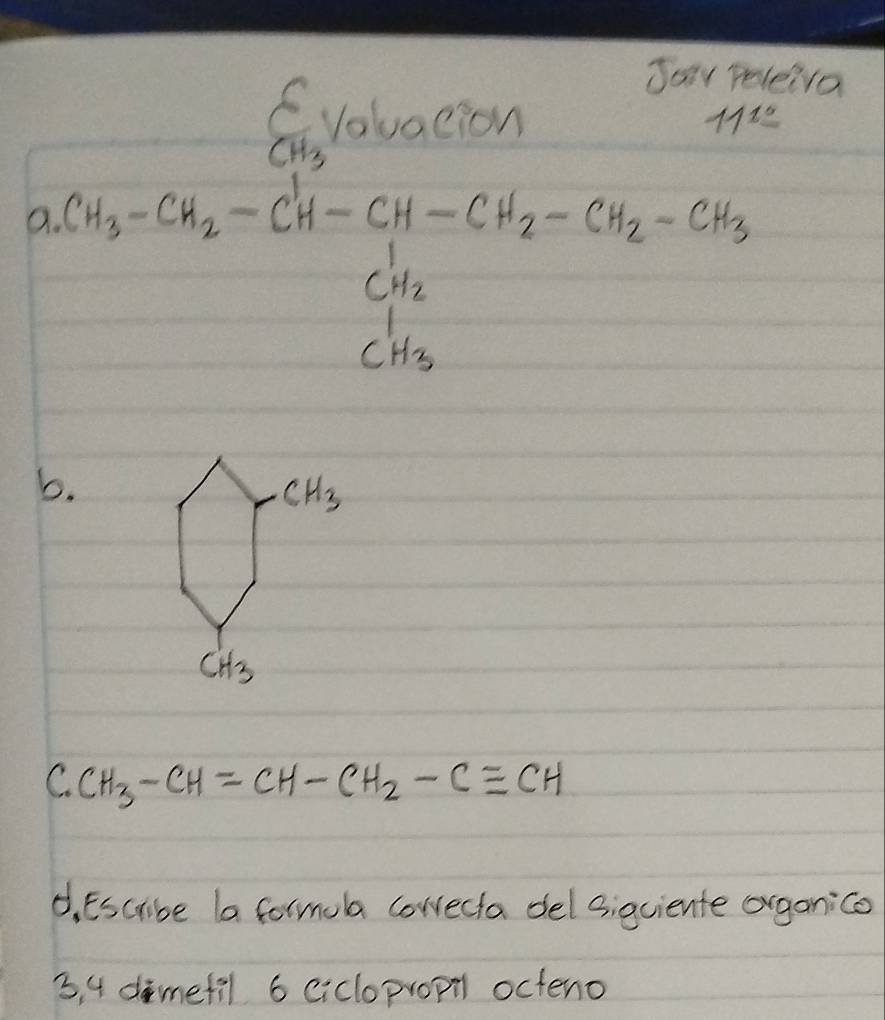 Evaluacion
Jair Pereira
11 1º
CH3
a. CH3-CH2-CH-CH-CH2-CH2-CH3
CH2
CH3
b.
CH3
CH3
C. CH3-CH=CH-CH2-C≡CH
d. Escribe la formula correcta del siguiente organico
3,4 dimetil 6 ciclopropil octeno